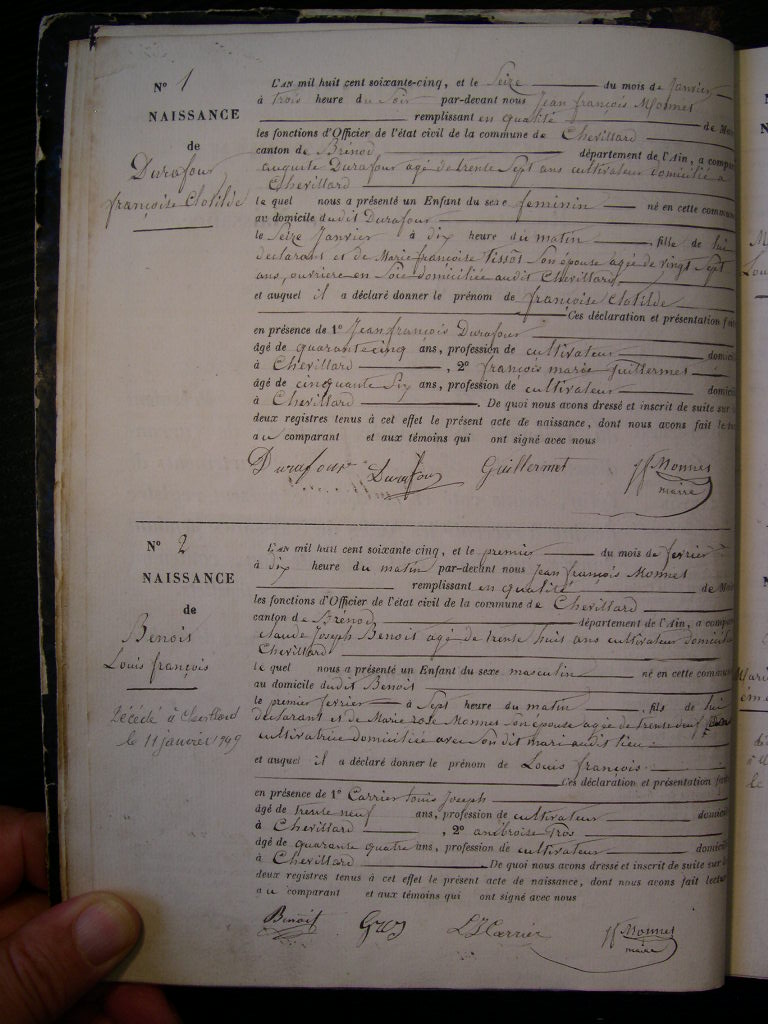 N° 1
NAISSANCE
de
Durafour
françoise Clotilde
L'AN mil huit cent soixante-cinq, et le Seize du mois de Janvier
à trois heure du Soir par-devant nous Jean françois Monnet
remplissant en qualité de
les fonctions d'Officier de l'état civil de la commune de Chevillard
canton de Brénod département de l'Ain, a
auguste Durafour agé de trente Sept ans cultivateur domicilié a
Chevillard
le quel nous a présenté un Enfant du sexe feminin né en cette
au domicile dudit Durafour
le Seize Janvier à dix heure du matin, fille de lui
declarant et de Marie françoise Tissot Son épouse agée de vingt Sept
ans, ouvriere en Soie domiciliée audit Chevillard
et auquel il a déclaré donner le prénom de françoise Clotilde
Ces déclaration et présentation
en présence de 1° Jean françois Durafour
âgé de quarante cinq ans, profession de cultivateur
à Chevillard, 2° françois marie Guillermet
âgé de cinquante Six ans, profession de cultivateur
à Chevillard. De quoi nous avons dressé et inscrit de suite sur
deux registres tenus à cet effet le présent acte de naissance, dont nous avons fait
au comparant et aux témoins qui ont signé avec nous
Durafour Durafour Guillermet Jf Monnet
maire
N° 2
NAISSANCE
de
Benoit
Louis françois
Décédé à Chevillard
le 11 janvier 1949
L'AN mil huit cent soixante-cinq, et le premier du mois de fevrier
à dix heure du matin par-devant nous Jean françois Monnet
remplissant en qualité de
les fonctions d'Officier de l'état civil de la commune de Chevillard
canton de Brénod département de l'Ain, a
Claude Joseph Benoit agé de trente huit ans cultivateur
Chevillard
le quel nous a présenté un Enfant du sexe masculin né en cette
au domicile dudit Benoit
le premier fevrier à Sept heure du matin, fils de lui
declarant et de Marie rose Monnet Son épouse agée de trente neuf
cultivatrice domiciliée avec Son dit mari audit lieu
et auquel il a déclaré donner le prénom de Louis françois
Ces déclaration et présentation
en présence de 1° Carrier Louis Joseph
âgé de trente neuf ans, profession de cultivateur
à Chevillard, 2° ambroise Gros
âgé de quarante quatre ans, profession de cultivateur
à Chevillard. De quoi nous avons dressé et inscrit de suite sur
deux registres tenus à cet effet le présent acte de naissance, dont nous avons fait
au comparant et aux témoins qui ont signé avec nous
Benoit Gros Carrier Jf Monnet
maire